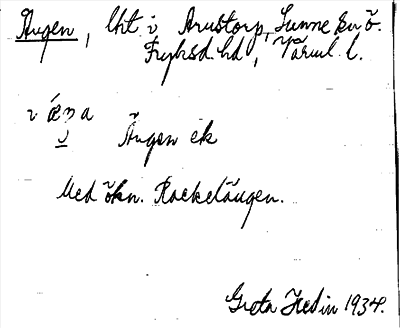 Ängen, lht i Arustorp, Sunne sn ö.
Fryksd. hd, Värml. l.
i æŋa
Ängen ek
Med ökn. Rackelängen.
Greta Hedin 1934.